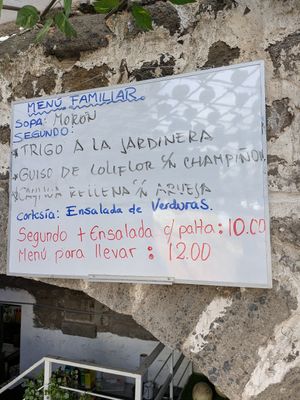 MENÚ FAMILIAR
SOPA: MORÓN
SEGUNDO:
TRIGO A LA JARDINERA
GUISO DE COLIFLOR C/ CHAMPIÑON
RELLENA C/ ARVEJA
Cortesía: Ensalada de Verduras.
Segundo + Ensalada c/ palta: 10.00
Menú para llevar: 12.00